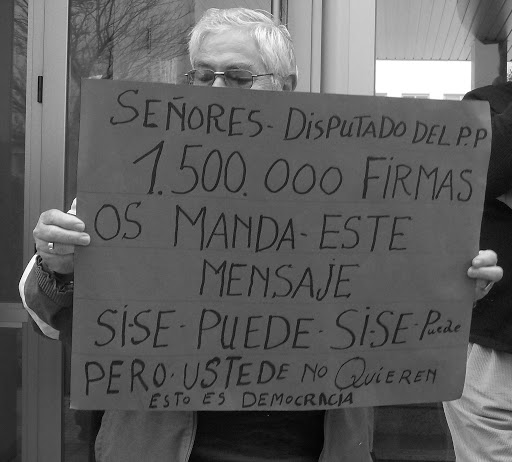 SEÑORES- DISPUTADO DEL P.P
1.500.000 FIRMAS
OS MANDA-ESTE
MENSAJE
SI-SE-PUEDE-SI-SE-Puede
PERO-USTEDE NO QUIEREN
ESTO ES DEMOCRACIA